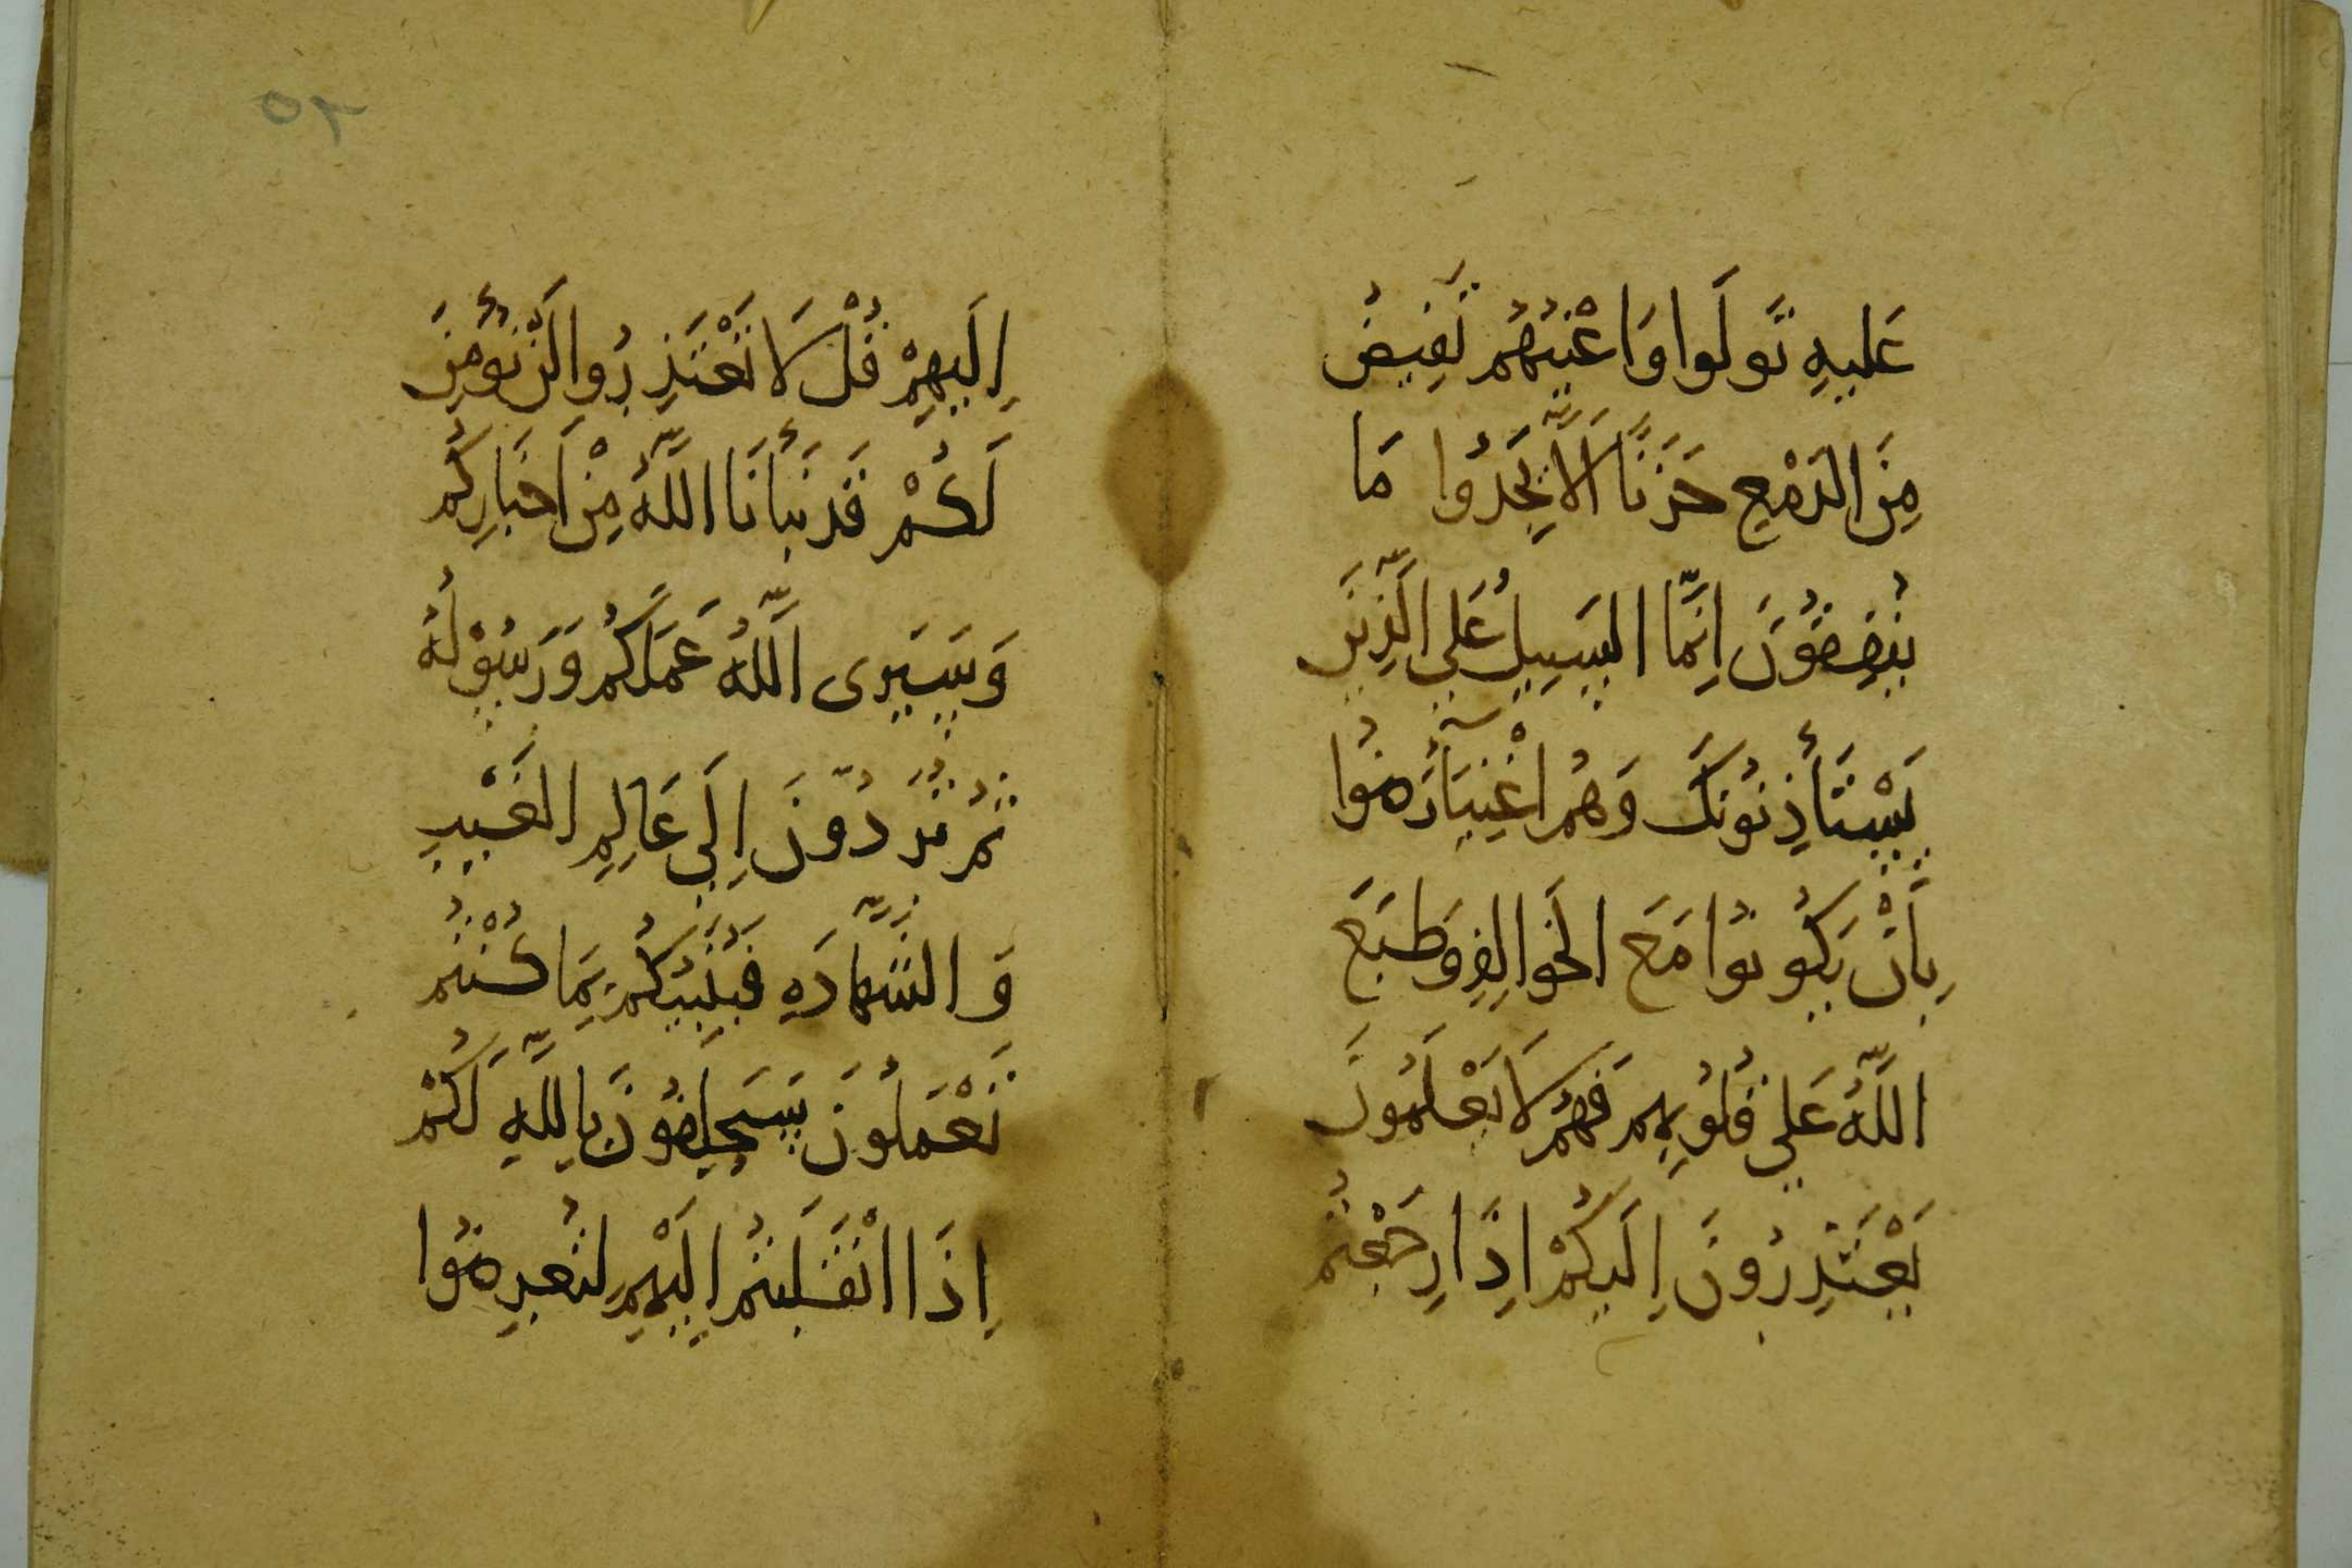 عَلَيهِ تَّولَوا وَاَعْيُنُهُم تَفِيضُ
مِنَ الدَمْعِ حَزَنًا اَلَّا يَجِدُوا مَا
يُنفِقُونَ اِنَّمَا السَبِيلُ عَلَي الَّذِينَ
يَسْتَأذِنُونَكَ وَهُم اَغْنِيَآءُ رَضُوا
بِأَنْ يَكُونُوا مَعَ الخَوالِفِ وَطَبَعَ
اللَّهُ عَلَي قُلُوبِهِم فَهُم لَا يَعْلَمُونَ
يَعْتَذِرُونَ اِلَيكُمْ اِذَا رَجَعْتُم
اِلَيهِمْ قُلْ لَا تَعْتَذِرُوا لَن نُؤمِنَ
لَكُمْ قَد نَبَأَنَا اللَّهُ مِنْ اَخبَارِكُم
وَسَيَرى اللَّهُ عَمَلَكُم وَرَسُوْلُهُ
ثُم تُرَدُّونَ اِلَي عَالِمِ الغَيْبِ
وَالشَّهادَهِ فَيُنَبِئُكُم بِمَا كُنْتُم
تَعْمَلُونَ سَيَحلِفُونَ بِاللَّهِ لَكُمْ
اِذَا انْقَلَبتُم اِلَيْهِم لِتُعرِضُوا
٥٢